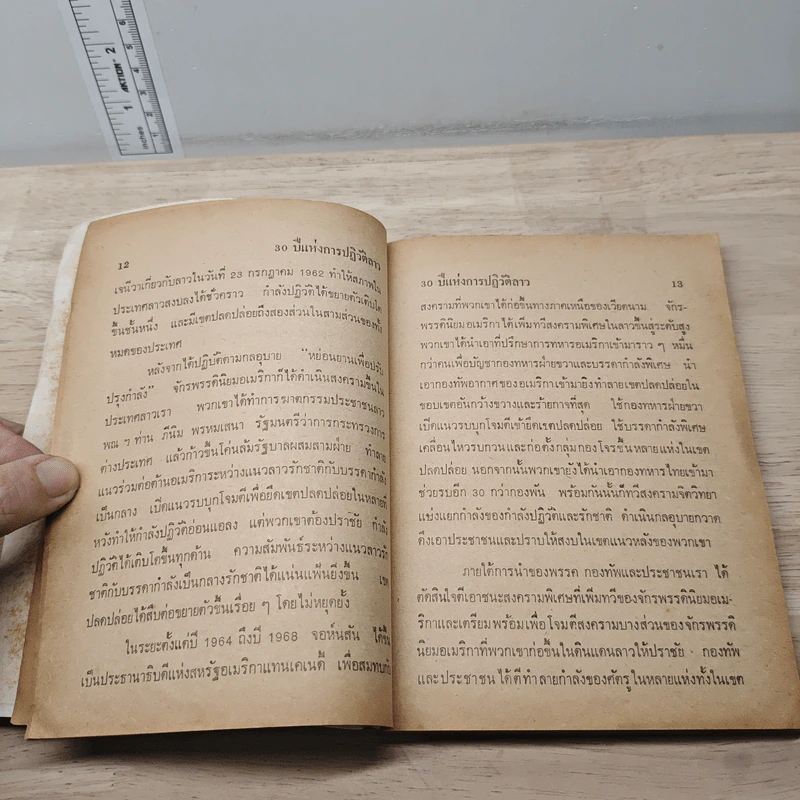 AKTION
inches
1
2
12
30 ปีแห่งการปฏิวัติลาว
เจนีวาเกี่ยวกับลาวในวันที่ 23 กรกฎาคม 1962 ทำให้สภาพใน
ประเทศลาวสงบลงได้ชั่วคราว กำลังปฏิวัติได้ขยายตัวเติบใต
ขึ้นชั้นหนึ่ง และมีเขตปลดปล่อยถึงสองส่วนในสามส่วนของทั้ง
หมดของประเทศ
หลังจากได้ปฏิบัติตามกลอุบาย "หย่อนยานเพื่อปรับ
ปรุงกำลัง" จักรพรรดินิยมอเมริกาก็ได้ดำเนินสงครามขึ้นใน
ประเทศลาวเรา พวกเขาได้ทำการฆาตกรรมประชาชนลาว
พณ ฯ ท่าน ภีนิม พรหมเสนา รัฐมนตรีว่าการกระทรวง
ต่างประเทศ แล้วก้าวขึ้นโค่นล้มรัฐบาลผสมสามฝ่าย ทำลาย
แนวร่วมต่อต้านอเมริการะหว่างแนวลาวรักชาติกับบรรดากำลัง
เป็นกลาง เปิดแนวรบบุกโจมตีเพื่อยึดเขตปลดปล่อยในหลายที่
หวังทำให้กำลังปฏิวัติอ่อนแอลง แต่พวกเขาต้องปราชัย กำลัง
ปฏิวัติได้เติบโตขึ้นทุกด้าน ความสัมพันธ์ระหว่างแนวลาวรัก
ชาติกับบรรดากำลังเป็นกลางรักชาติได้แน่นแฟ้นยิ่งขึ้น เขต
ปลดปล่อยได้สืบต่อขยายตัวขึ้นเรื่อย ๆ โดยไม่หยุดยั้ง
ในระยะตั้งแต่ปี 1964 ถึงปี 1968 จอห์นสัน ได้ขึ้น
เป็นประธานาธิบดีแห่งสหรัฐอเมริกาแทนเคเนดี้ เพื่อสมทบกับ
30 ปีแห่งการปฏิวัติลาว
13
สงครามที่พวกเขาได้ก่อขึ้นทางภาคเหนือของเวียดนาม จักร-
พรรดินิยมอเมริกาได้เพิ่มทวีสงครามพิเศษในลาวขึ้นสู่ระดับสูง
พวกเขาได้นำเอาที่ปรึกษาการทหารอเมริกาเข้ามาราว ๆ หมื่น
กว่าคนเพื่อบัญชากองทหารฝ่ายขวาและบรรดากำลังพิเศษ นำ
เอากองทัพอากาศของอเมริกาเข้ามายิงทำลายเขตปลดปล่อยใน
ขอบเขตอันกว้างขวางและร้ายกาจที่สุด ใช้กองทหารฝ่ายขวา
เปิดแนวรบบุกโจมตีเข้ายึดเขตปลดปล่อย ใช้บรรดากำลังพิเศษ
เคลื่อนไหวรบกวนและก่อตั้งกลุ่มกองโจรขึ้นหลายแห่งในเขต
ปลดปล่อย นอกจากนั้นพวกเขายังได้นำเอากองทหารไทยเข้ามา
ช่วยรบอีก 30 กว่ากองพัน พร้อมกันนั้นก็ทวีสงครามจิตวิทยา
แบ่งแยกกำลังของกำลังปฏิวัติและรักชาติ ดำเนินกลอุบายกวาด
ดึงเอาประชาชนและปราบให้สงบในเขตแนวหลังของพวกเขา
ภายใต้การนำของพรรค กองทัพและประชาชนเรา ได้
ตัดสินใจตีเอาชนะสงครามพิเศษที่เพิ่มทวีของจักรพรรดินิยมอเม-
ริกาและเตรียมพร้อมเพื่อโจมตีสงครามบางส่วนของจักรพรรดิ
นิยมอเมริกาที่พวกเขาก่อขึ้นในดินแดนลาวให้ปราชัย กองทัพ
และประชาชนได้ตีทำลายกำลังของศัตรูในหลายแห่งทั้งในเขต